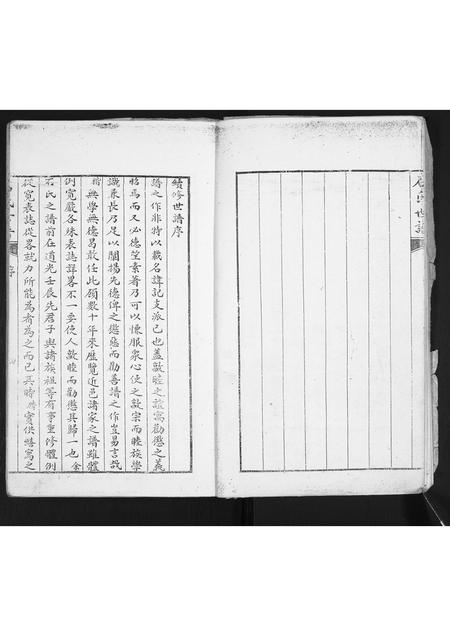 石氏世譜
續修世譜序
譜之作非特以載名諱記支派已也蓋敦睦之誼寓勸懲之義
昭焉而又必德望素著乃可以悚服眾心使之敦宗而睦族學
識兼長乃足以闡揚先德俾之懲惡而勸善譜之作豈易言哉
無學無德曷敢任此顧數十年來歷覽近邑諸家之譜雖體
例寬嚴各殊表誌詳畧不一要使人敦睦而勸懲其歸一也余
石氏之譜前在道光壬辰先君子與諸族祖等有事重修體例
從寬表誌從畧就力所能為者為之而已其時 實供繕寫之
序